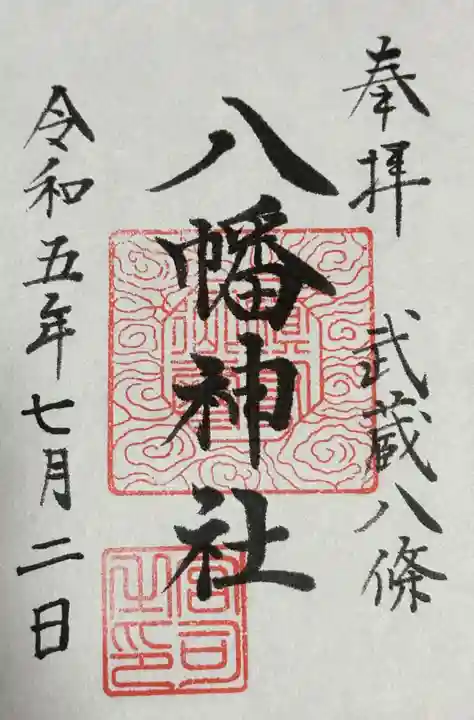 奉拝 武蔵八條
八幡神社
宮司之印
令和五年七月二日